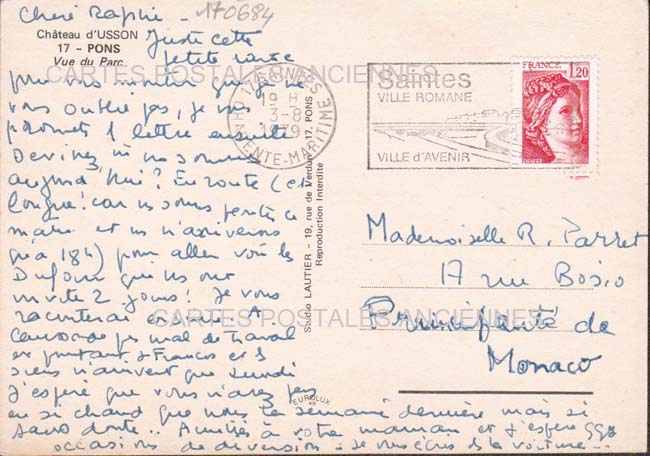 Chère Raphie -
170684
Château d'USSON
17 - PONS
Vue du Parc
Juste cette
petite carte
pour vous montrer que je ne
vous oublie pas, je vous
promets 1 lettre ensuite
Devinez où ns sommes
aujourd'hui? En route (et
longue! car ns sommes partis ce
matin et ns n'arriverons
qu'à 18h) pour aller voir les
Dufour que ns ont
invité 2 jours! Je vous
raconterai ensuite. A
pas mal de travail
et pourtant Francos et
n'arrivent que Lundi
J'espère que vous n'avez pas
eu si chaud que nous la semaine dernière mais si
sans doute.. Amitiés à votre maman et j'espère qqs
occasions de diversion - je vous écris ds la voiture -..
CARTES POSTALES ANCIENNES
CARTES POSTALES ANCIENNES
19 H
3-8
1979
CHARENTE-MARITIME
Saintes
VILLE ROMANE
VILLE d'AVENIR
FRANCE
1,20
Studio LAUTIER - 19, rue de Verdun - 17. PONS
Reproduction Interdite
EUROLUX
Mademoiselle R. Parret
17 rue Bosio
Principauté de
Monaco